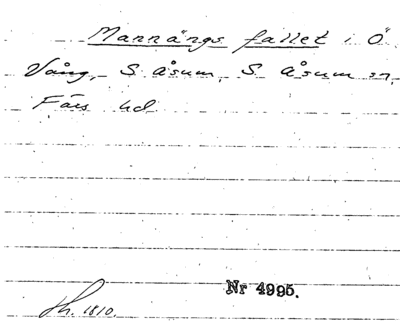 Mannängs fallet i Ö
Vång, S. Åsum, S. Åsum sn,
Färs hd
Nr 4995.
Sk. 1810.